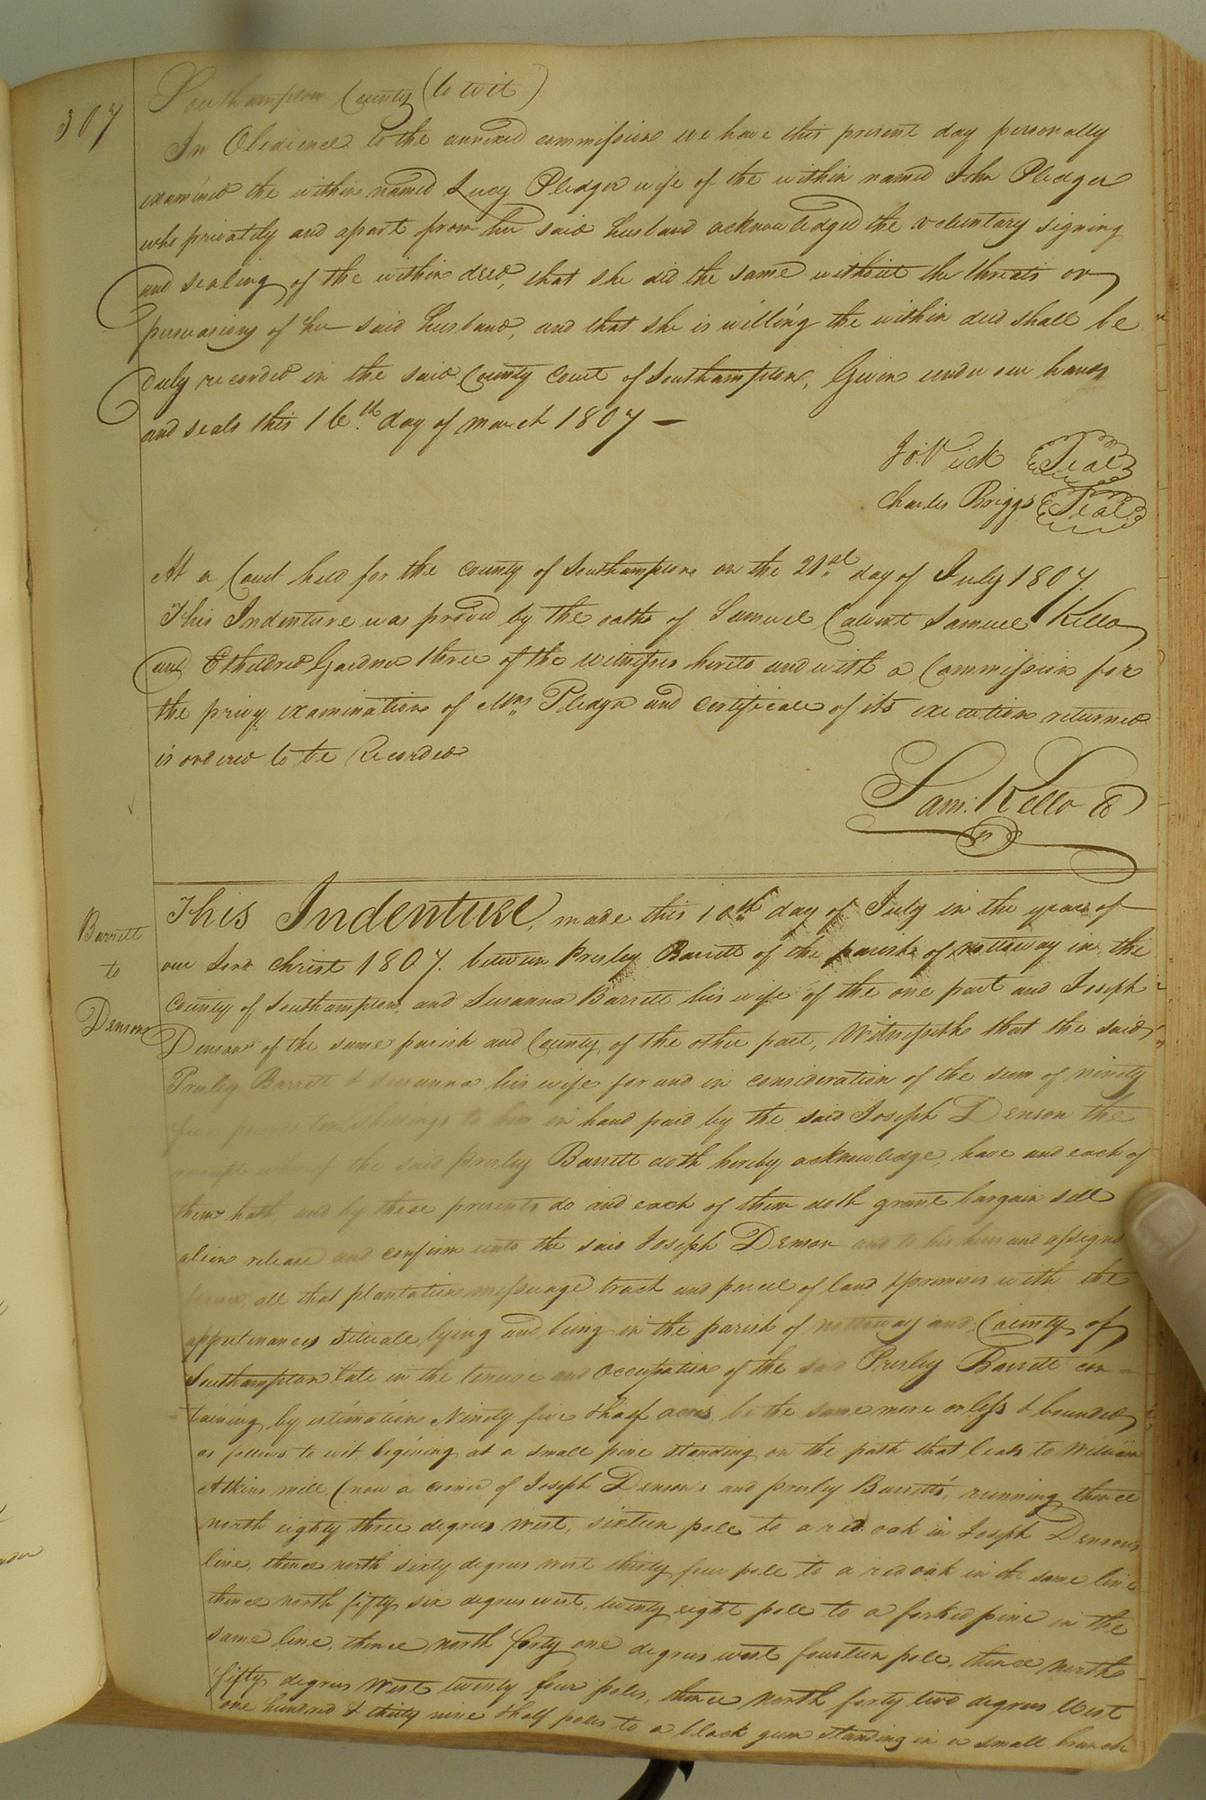 307
Southampton County (to wit)
In Obedience to the annexed commission we have this present day personally
examined the within named Lucy Pledger wife of the within named John Pledger
who privately and apart from her said husband acknowledged the voluntary signing
and sealing of the within deed, that she did the same without the threats or
persuasions of her said husband, and that she is willing the within deed shall be
duly recorded in the said County Court of Southampton, Given under our hands
and seals this 16.th day of march 1807 —
Jo: Vick Seal
Charles Briggs Seal
At a Court held for the county of Southampton on the 21.st day of July 1807.
This Indenture was proved by the oaths of Samuel Calvert Samuel Kello
and Etheldred Gardner three of the witnesses hereto and with a Commission for
the privy examination of Mrs Pledger and certificate of its execution returned
is ordered to be Recorded
Sam: Kello
Barrett
to
Denson
This Indenture, made this 10th day of July in the year of
our Lord Christ 1807. between Presley Barrett of the parish of nottoway in the
County of Southampton, and Susanna Barrett his wife of the one part and Joseph
Denson of the same parish and County of the other part, Witnesseth that the said
Presley Barrett & Susanna his wife for and in consideration of the sum of ninety
five pound ten shillings to him in hand paid by the said Joseph Denson the
receipt whereof the said Presley Barrett doth hereby acknowledge, have and each of
them hath and by these presents do and each of them doth grant bargain sell
alien release and confirm unto the said Joseph Denson and to his heirs and assigns
forever, all that plantation messuage tract and parcel of land & premises with the
appurtenances Situate lying and being in the parish of nottoway and County of
Southampton late in the tenure and occupation of the said Presley Barrett con-
-taining by estimation Ninety five & half acres, be the same more or less & bounded
as follows to wit begining at a small pine standing on the path that leads to William
Atkins mill (now a corner of Joseph Denson's and presley Barrett's, running thence
north eighty three degrees West, sixteen pole to a red oak in Joseph Denson's
line, thence north sixty degrees west thirty four pole to a red oak in the same line
thence north fifty six degrees west, twenty eight pole to a forked pine in the
same line, thence north forty one degrees west fourteen pole, thence north
fifty degrees West twenty four poles, thence North forty two degrees West
one hundred & thirty nine & half poles to a black gum standing in a small branch